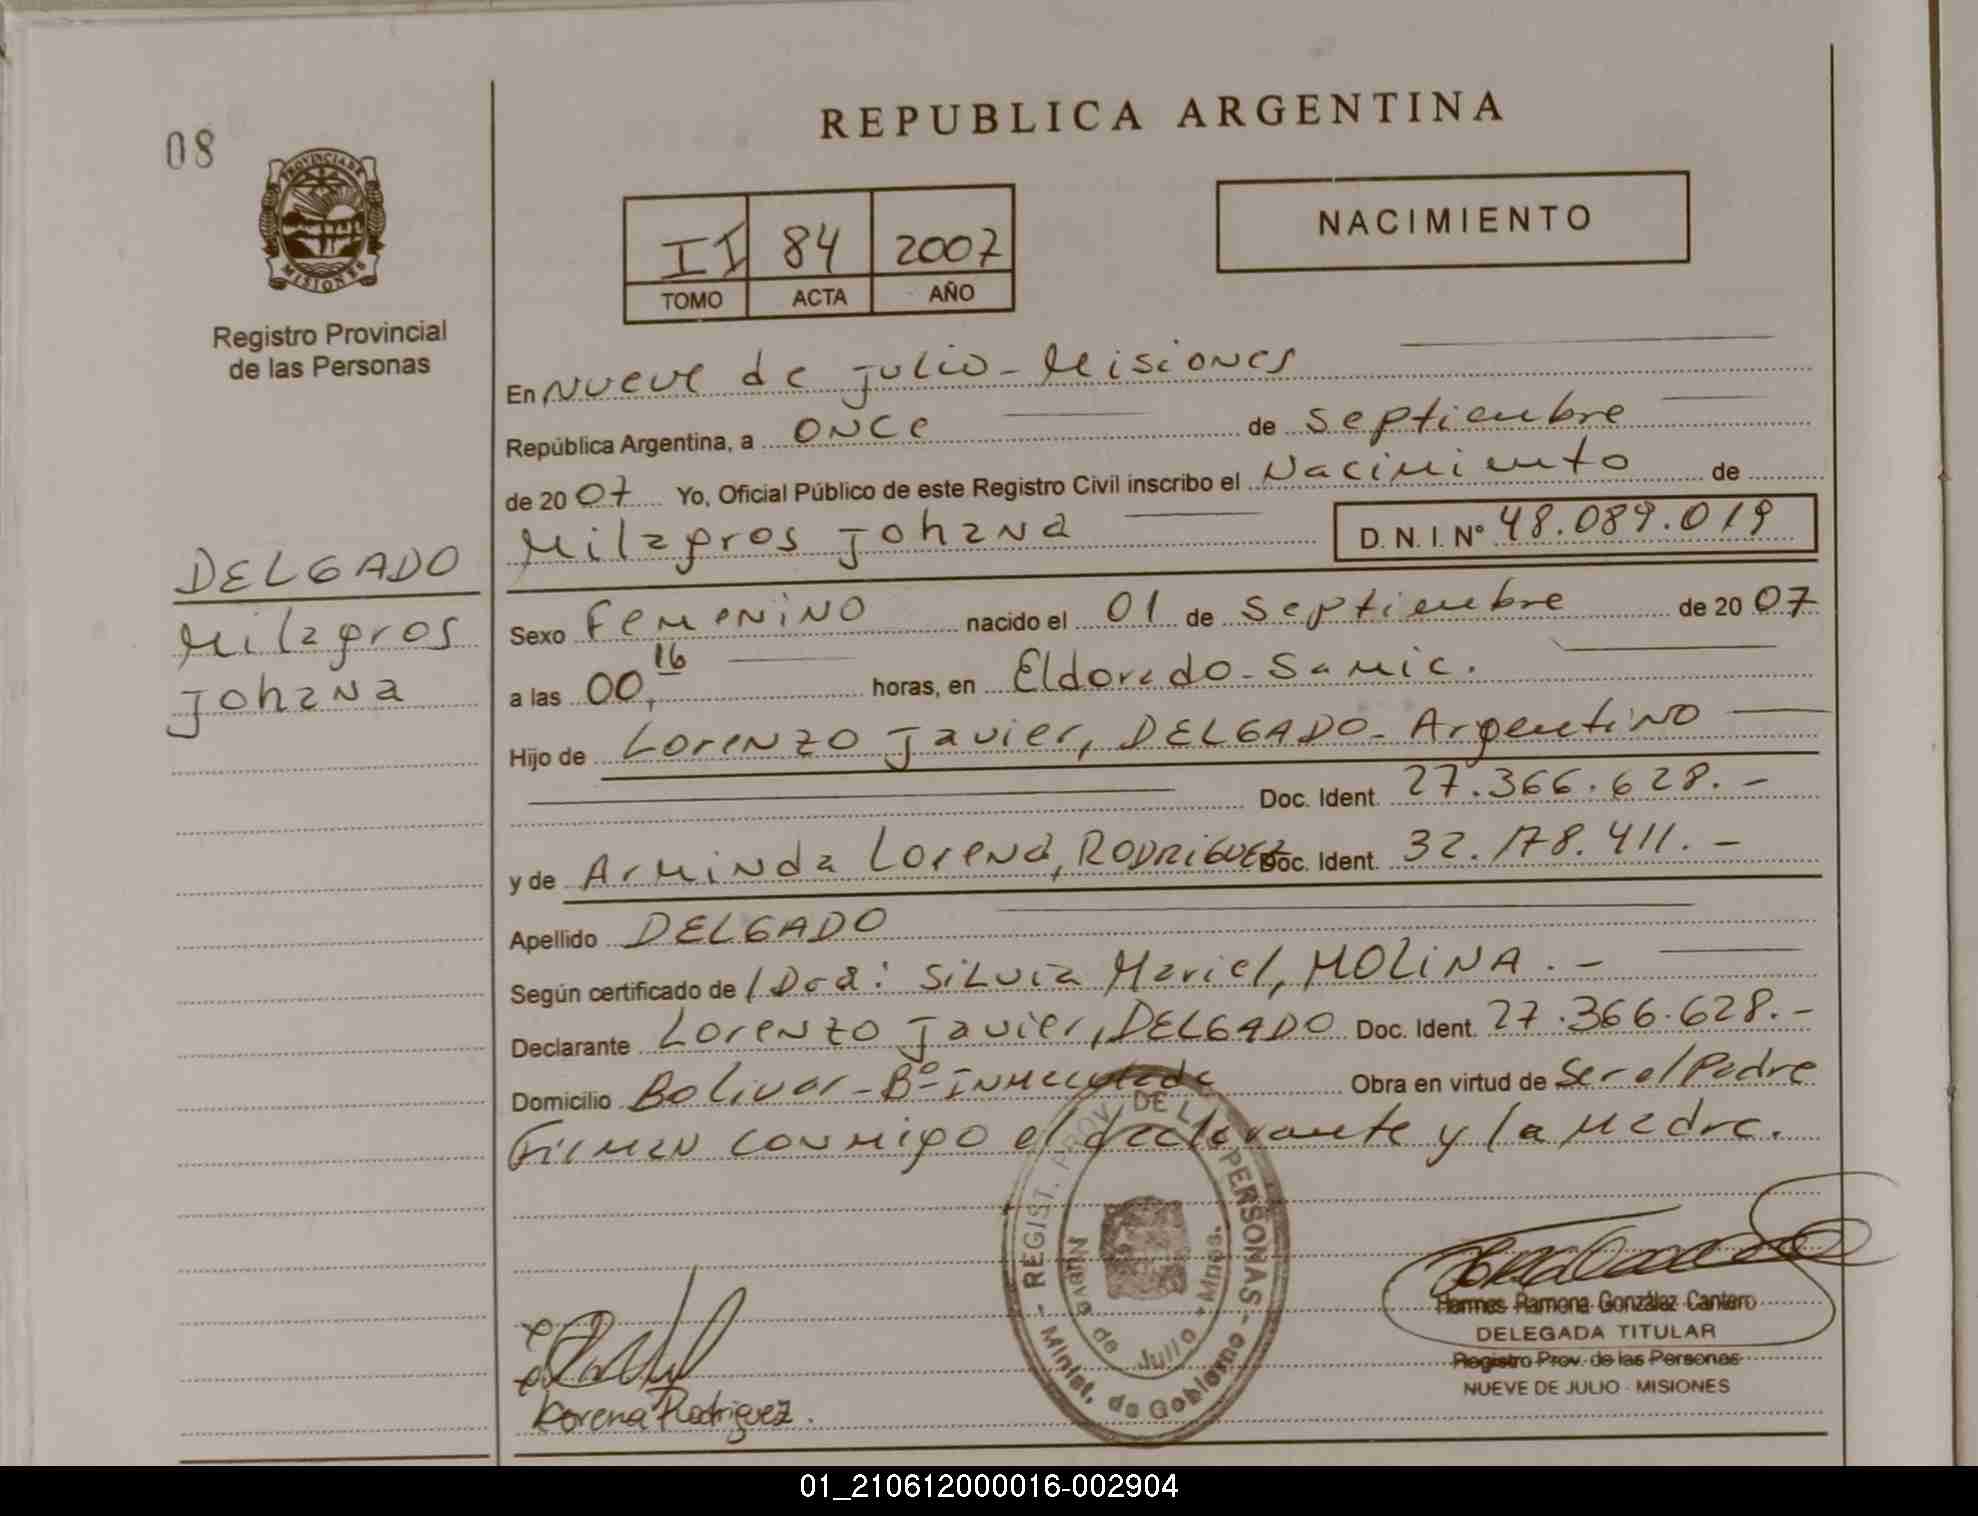 08
PROVINCIA DE
MISIONES
Registro Provincial
de las Personas
DELGADO
Milagros
Johana
REPUBLICA ARGENTINA
II 84 2007
TOMO ACTA AÑO
NACIMIENTO
En Nueve de Julio - Misiones
República Argentina, a once de septiembre
de 2007 Yo, Oficial Público de este Registro Civil inscribo el Nacimiento de
Milagros Johana D. N. I. Nº 48.089.019
Sexo Femenino nacido el 01 de septiembre de 2007
a las 00,16 horas, en Eldorado - Samic.
Hijo de Lorenzo Javier, DELGADO - Argentino
Doc. Ident. 27.366.628.-
y de Arminda Lorena, RODRIGUEZ Doc. Ident. 32.178.411.-
Apellido DELGADO
Según certificado de / Dra: Silvia Mariel, MOLINA.-
Declarante Lorenzo Javier, DELGADO Doc. Ident. 27.366.628.-
Domicilio Bolivar - Bº Inmaculada Obra en virtud de Ser el Padre
Firman conmigo el declarante y la Madre.
- REGIST. PROV. DE LAS PERSONAS -
Minist. de Gobierno
Nueve de Julio - Mnes.
Lorena Rodriguez.
Hermes Ramona González Cantero
DELEGADA TITULAR
Registro Prov. de las Personas
NUEVE DE JULIO - MISIONES
01_210612000016-002904